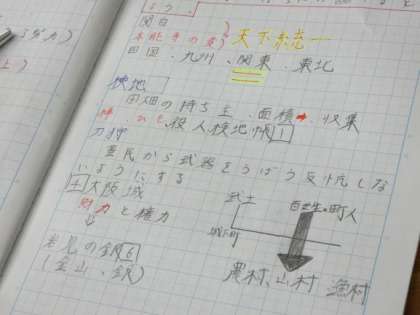 関白
本能寺の変 天下統一
四国、九州、関東、東北
検地
田畑の持ち主、面積➡収集
役人検地帳1
刀狩
農民から武器をうばう反抗しな
いようにする
4大阪城
財力と権力
⇓
石見の銀6
(金山、銀)
武士
百姓・町人
城下町
農村、山村 漁村